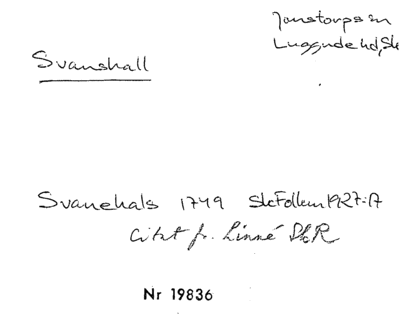 Jonstorps sn
Luggude hd, Sk
Svanshall
Svanehals 1749 SkFollem 1927:17
Citat fr. Linné SkR
Nr 19836